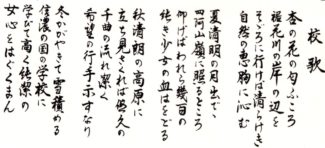 校歌
杏の花の匂ふころ
裾花川の岸の辺を
そぞろに行けば清らけき
自然の恵胸に沁む
夏清明の月出でて
四阿山嶺に照るところ
仰げばわれら幾百の
純き少女の血はをどる
秋清朗の高原に
立ち見さくれば悠久の
千曲の流れ潔く
希望の行手示すなり
冬かがやきて雪積める
信濃の国の学校に
学びて高く純潔の
女心をはぐくまん